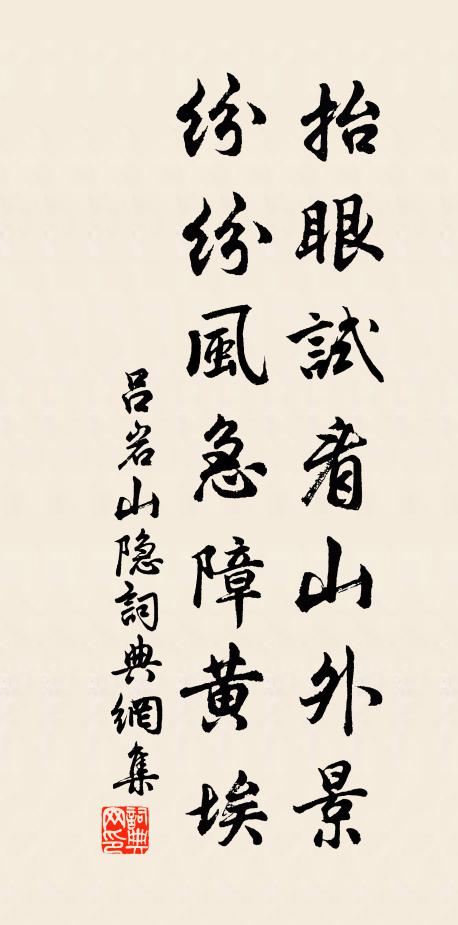 抬眼試看山外景
紛紛風急障黃埃
吕岩山隐詞典網集
詞典网印